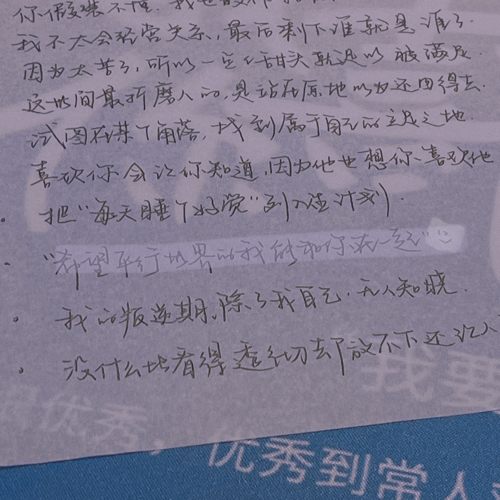 你假装不懂,我也
我不太会经营关系,最后剩下谁就是谁了
因为太苦了,所以一点点甜头就足以被满足
这世间最折磨人的,是站在原地以为还回得去.
试图在某个角落,找到属于自己的立足之地.
喜欢你会让你知道,因为他也想你喜欢他
把“每天睡个好觉”列入人生计划.
“希望平行世界的我能和你在一起”
我的叛逆期,除了我自己,无人知晓.
没什么比看得透彻却放不下还
我要
优秀,优秀到常人